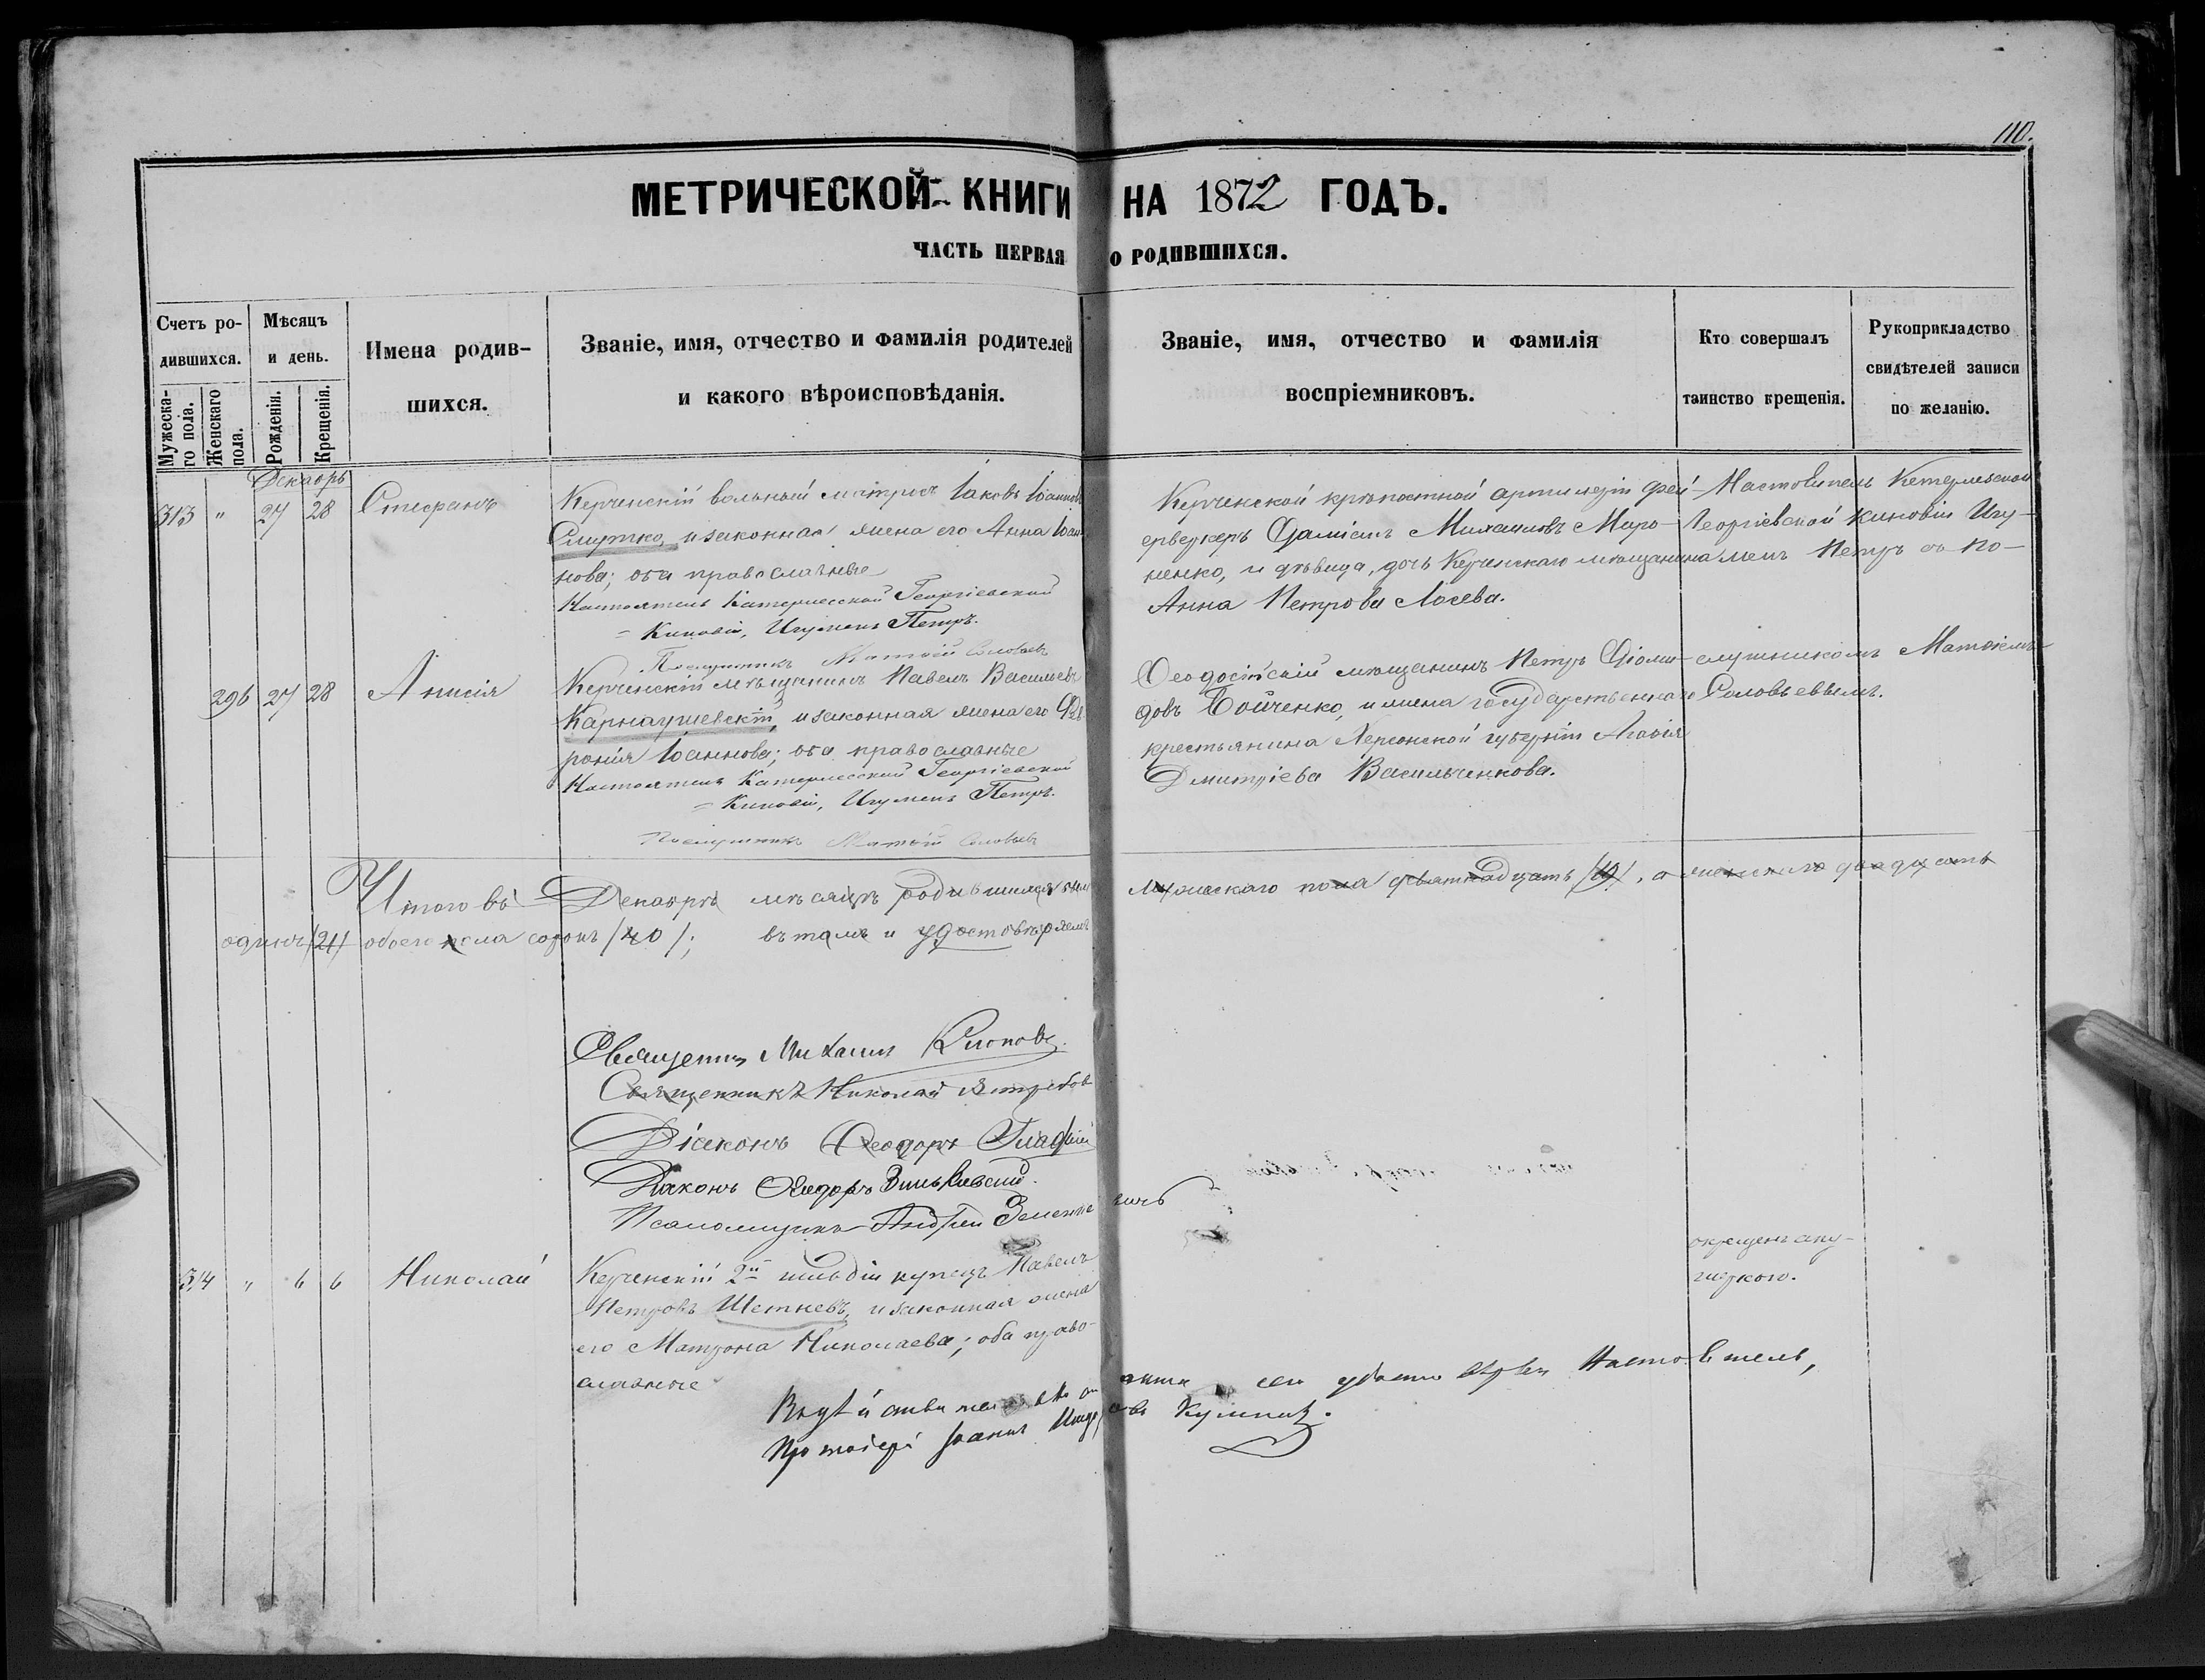 110.
МЕТРИЧЕСКОЙ КНИГИ НА 1872 ГОДЪ.
ЧАСТЬ ПЕРВАЯ О РОДИВШИХСЯ.
Счетъ ро-
дившихся.
Мужеска-
го пола.
Женскаго
пола.
Мѣсяцъ
и день.
Рожденія.
Крещенія.
Имена родив-
шихся.
Званіе, имя, отчество и фамилія родителей
и какого вѣроисповѣданія.
Званіе, имя, отчество и фамилія
воспріемниковъ.
Кто совершалъ
таинство крещенія.
Рукоприкладство
свидѣтелей записи
по желанію.
Декабрь
313 " 27 28 Стефанъ
Керченскій вольный матросъ Іаковъ Іоанновъ
Смутко, и законная жена его Анна Іоан-
нова; оба православные
Настоятель Катерлесской Георгіевской
Киновіи, Игуменъ Петръ.
Послушникъ Матѳій Соловьевъ
Керченской крѣпостной артиллеріи фей-
ерверкеръ Даміанъ Михаиловъ Миро-
ненко, и дѣвица, дочь Керченскаго мѣщанина
Анна Петрова Лосева.
Настоятель Катерлесской
Георгіевской Киновіи Игу-
менъ Петръ съ по-
слушникомъ Матѳіемъ
Соловьевымъ.
296 27 28 Анисія
Керченскій мѣщанинъ Павелъ Васильевъ
Карнаушевскій, и законная жена его Фев-
ронія Іоаннова; оба православные
Настоятель Катерлесской Георгіевской
Киновіи, Игуменъ Петръ.
Послушникъ Матѳій Соловьевъ
Ѳеодосійскій мѣщанинъ Петръ Діоми-
довъ Бойченко, и жена государственнаго
крестьянина Херсонской губерніи Агафія
Дмитріева Васильченкова.
Итого въ Декабрѣ мѣсяцѣ родившихся мужескаго пола девятнадцать /19/, а женскаго двадцать
одинъ /21/ обоего пола сорокъ /40/; въ томъ и удостовѣряемъ
Священникъ Михаилъ
Священникъ Николай Ястребов
Діаконъ Ѳеодоръ Гладкій
Діаконъ Ѳеодоръ Зиньковскій.
Псаломщикъ Андрей
314 " 6 6 Николай
Керченскій 2й гильдіи купецъ Павелъ
Петровъ Щетневъ, и законная жена
его Матрона Николаева; оба право-
славные
окрещенъ аку-
шеркою.
сей
Протоіерей Іоаннъ